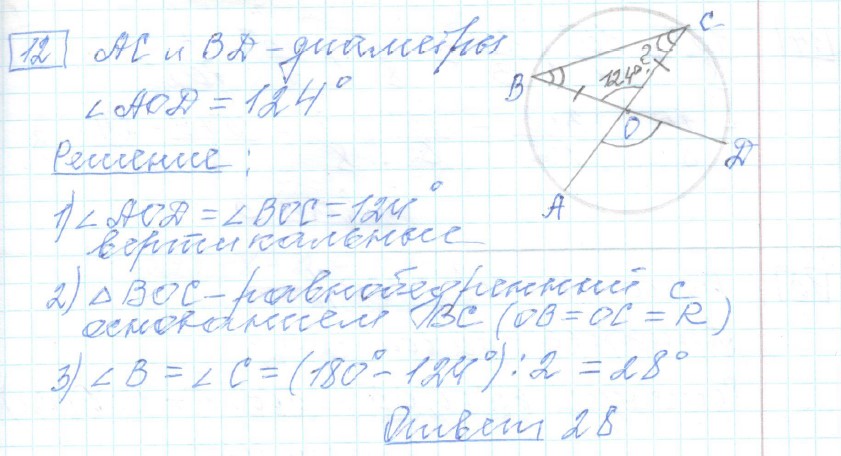 12 AC и BD - диаметры
∠AOD = 124°
Решение:
1) ∠AOD = ∠BOC = 124°
вертикальные
2) △BOC - равнобедренный с
основанием BC (OB = OC = R)
3) ∠B = ∠C = (180° - 124°) : 2 = 28°
Ответ 28
C
?
124°
B
O
D
A